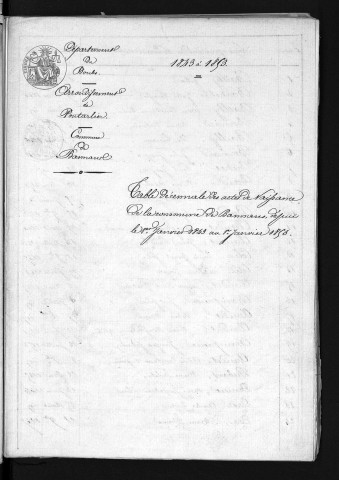 Département
du
Doubs
Arrondissement
de
Pontarlier
Commune
de
Bannans
1843 à 1853.
Table Décennale des actes de Naissance
de la commune de Bannans, depuis
le 1er Janvier 1843 au 1er Janvier 1853.